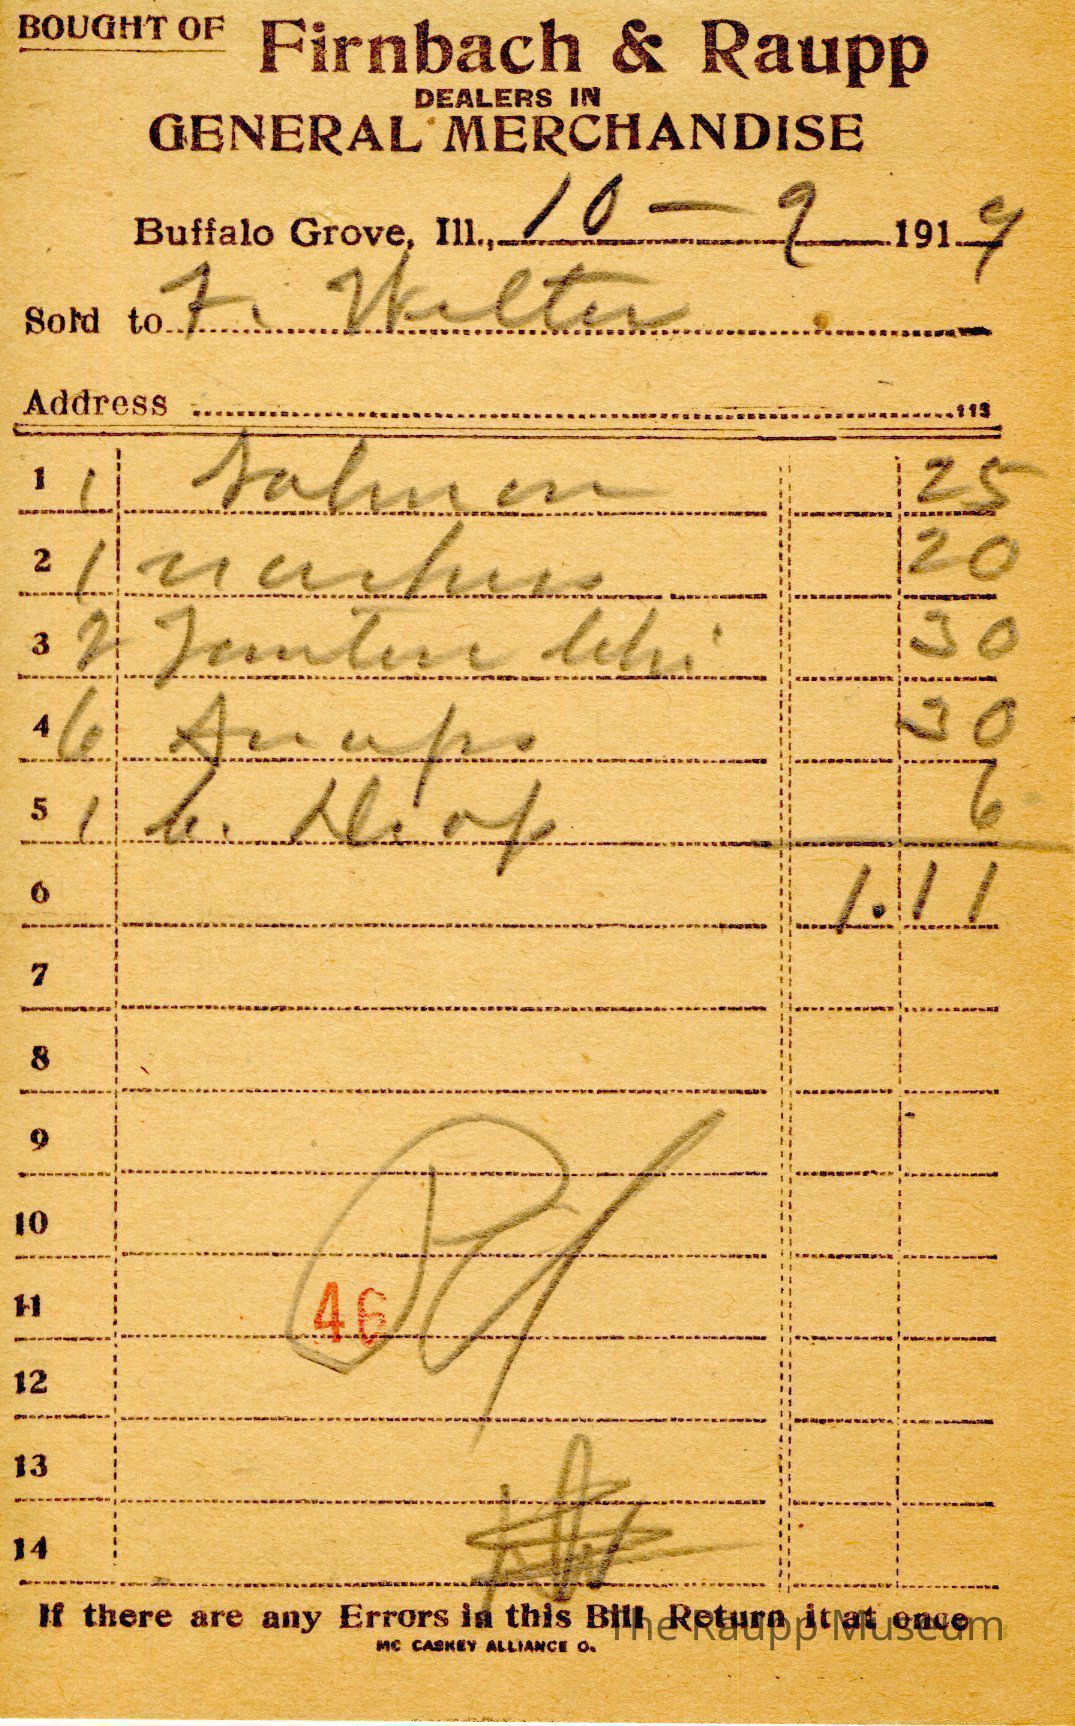 BOUGHT OF Firnbach & Raupp
DEALERS IN
GENERAL MERCHANDISE
Buffalo Grove, Ill., 10 - 9 1919
Sold to F. Welter
Address 113
1 1 Salmon 25
2 1 20
3 2 30
4 6 Snaps 30
5 1 C. Drop 6
6 1.11
7
8
9
10
46
11
12
13
14
If there are any Errors in this Bill Return it at once
The Raupp Museum
MC CASKEY ALLIANCE O.